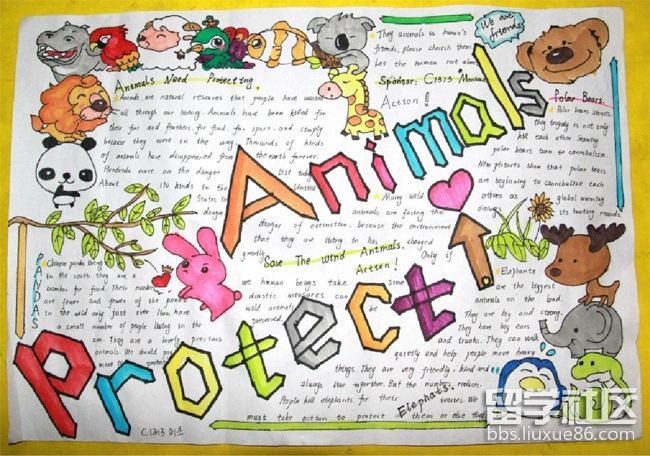 They animals is human's
friends, please cherish them.
Let the human not alone
Sponsor: C1313
Action!
We are
friends
Animals Need Protecting.
Animals are natural resources that people have wasted
all through our history. Animals have been killed for
their fur and feathers, for food, for sport, and simply
because they were in the way. Thousands of kinds
of animals have disappeared from the earth forever.
Hundreds more are on the danger list today.
About 170 kinds in the United
States in
danger
Animals
Protect
Polar Bears.
Polar bears
they tragedy is not only
kill each other starving
polar bears turn to cannibalism.
New pictures show that polar bears
are beginning to cannibalise each
others as global warming
destroys its hunting grounds
Many wild
animals are facing the
danger of extinction, because the environment
that they are living in has changed
greatly. Only if
Save The Wind Animals.
Action!
we human beings take some
drastic measures can
wild animals be
preserved.
PANDAS
Chinese panda living
in the south. they are a
bamboo for food. Their number
are fewer and fewer of the panda
in the wild only just over
a small number of people living in the
They are a lovely precious
animals. We should pay
more
Elephants
are the biggest
animals on the land.
They are big and strong.
They have big ears
and trunks. They can walk
quietly and help people move heavy
things. They are very friendly, kind and
always live together. But the number reduces.
People kill elephants for their ivories. We
must take action to protect them or else they
Elephants.
C1313
留学社区
bbs.liuxue86.com